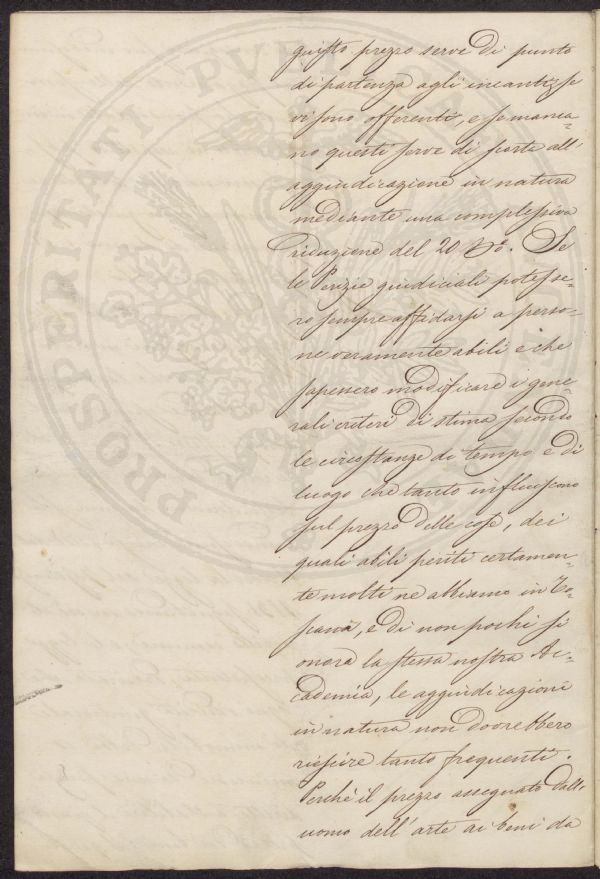 questo prezzo serve di punto
di partenza agli incanti, se
vi sono offerenti, e se manca=
no questi serve di piede all'
aggiudicazione in natura
mediante una complessiva
riduzione del 20 p%. Se
le Perizie giudiciali potesse=
ro sempre affidarsi a perso=
ne veramente abili e che
sapessero modificare i gene=
rali criteri di stima secondo
le circostanze di tempo e di
luogo che tanto influiscono
sul prezzo delle cose, dei
quali abili periti certamen=
te molti ne abbiamo in To=
scana, e di non pochi si
onora la stessa nostra Ac=
cademia, le aggiudicazioni
in natura non dovrebbero
riescire tanto frequenti.
Perchè il prezzo assegnato dall'
uomo dell'arte ai beni da
PROSPERITATI PVBL